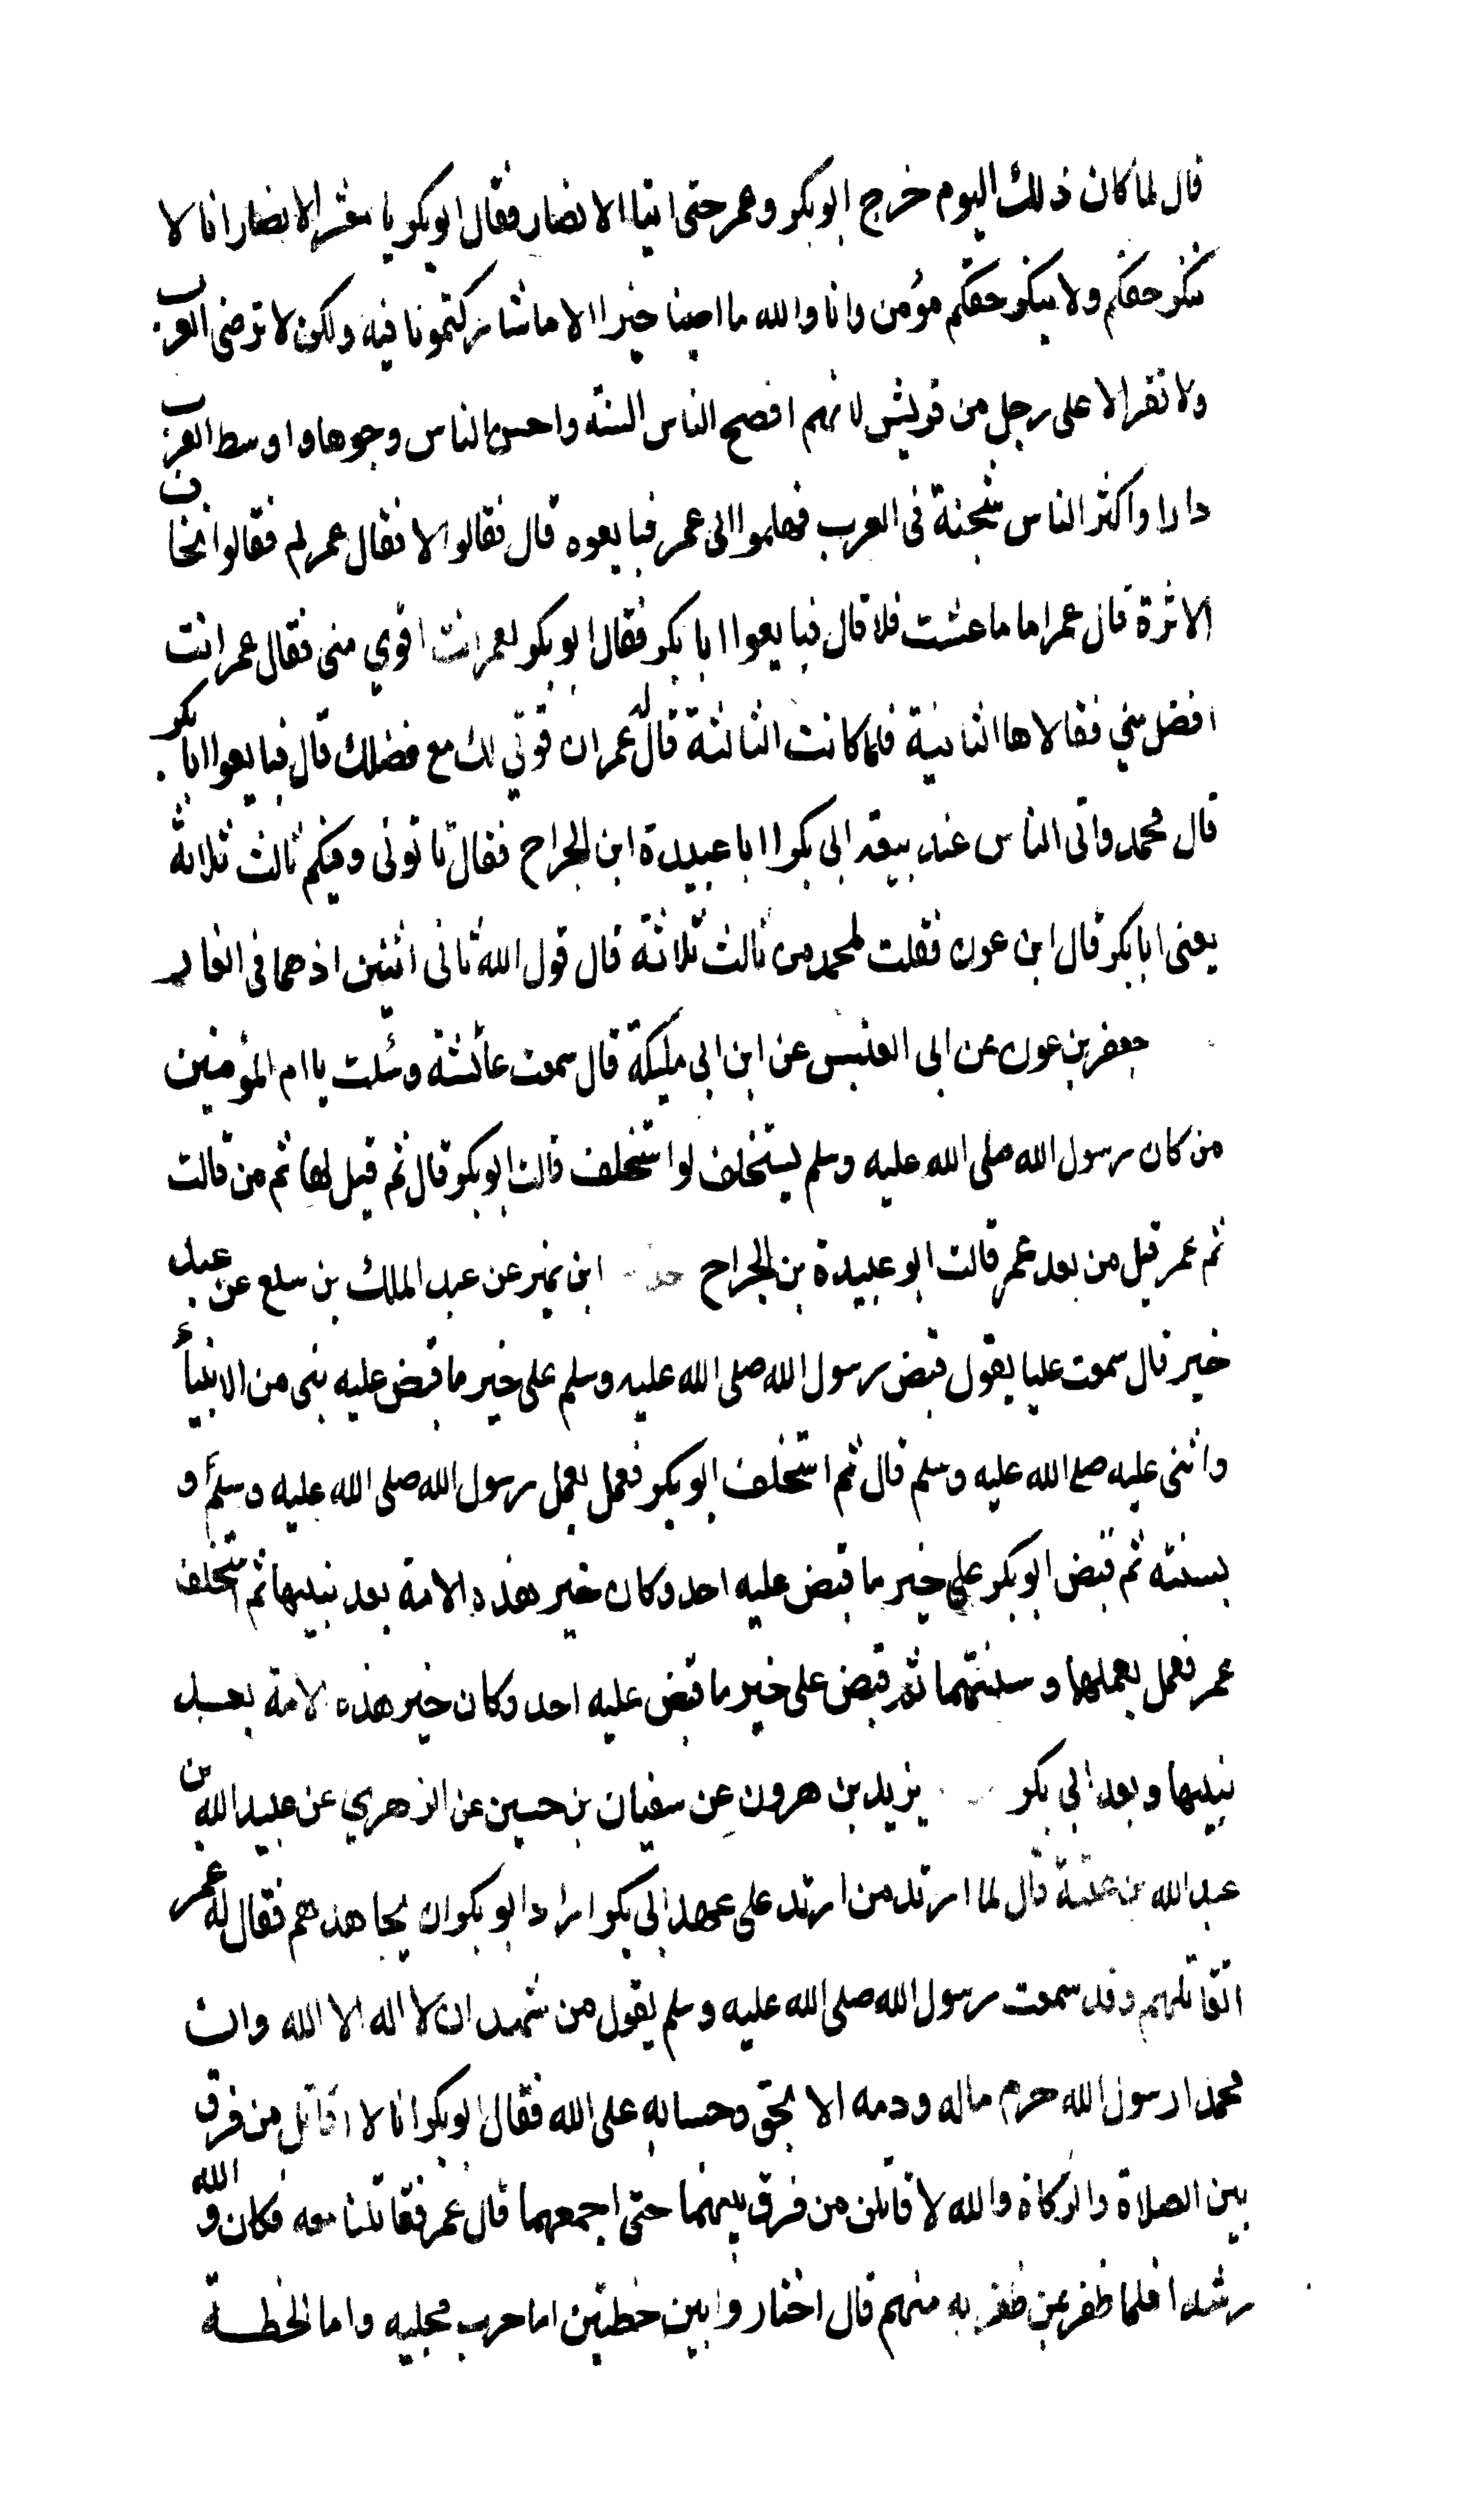 قال لما كان ذلك اليوم خرج ابو بكر وعمر حتى اتيا الانصار فقال ابو بكر يا معشر الانصار انا لا
ننكر حقكم ولا ينكر حقكم مؤمن وانا والله ما اصبنا خيرا الا ما شاركتمونا فيه ولكن لا ترضى العرب
ولا تقر الا على رجل من قريش لانهم افصح الناس السنة واحسن الناس وجوها واوسط العرب
دارا واكثر الناس شجنة في العرب فهلموا الى عمر فبايعوه قال فقالوا لا فقال عمر لم فقالوا نخاف
الاثرة قال عمر اما ما عشت فلا قال فبايعوا ابا بكر فقال ابو بكر لعمر انت اقوي مني فقال عمر انت
افضل مني فقالاها الثانية فلما كانت الثالثة قال له عمر ان قوتي لك مع فضلك قال فبايعوا ابا بكر
قال محمد واتى الناس عند بيعة ابي بكر ابا عبيدة ابن الجراح فقال تاتوني وفيكم ثالث ثلاثة
يعني ابا بكر قال ابن عون فقلت لمحمد من ثالث ثلاثة قال قول الله ثاني اثنين اذ هما في الغار
جعفر بن عون عن ابي العنبس عن ابن ابي مليكة قال سمعت عائشة وسئلت يا ام المؤمنين
من كان رسول الله صلى الله عليه وسلم يستخلف لو استخلف قالت ابو بكر قال ثم قيل لها ثم من قالت
ثم عمر قيل من بعد عمر قالت ابو عبيدة بن الجراح ابن نمير عن عبد الملك بن سلع عن عبد
خير قال سمعت عليا يقول قبض رسول الله صلى الله عليه وسلم على خير ما قبض عليه نبي من الانبياء
واثنى عليه صلع الله عليه وسلم قال ثم استخلف ابو بكر فعمل بعمل رسول الله صلى الله عليه وسلم و
بسنته ثم قبض ابو بكر على خير ما قبض عليه احد وكان خير هذه الامة بعد نبيها ثم استخلف
عمر فعمل بعملهما وسنتهما ثم قبض على خير ما قبض عليه احد وكان خير هذه الامة بعد
نبيها وبعد ابي بكر يزيد بن هرون عن سفيان بن حسين عن الزهري عن عبيد الله بن
عبد الله بن عتبة قال لما ارتد من ارتد على عهد ابي بكر اراد ابو بكر ان يجاهدهم فقال له عمر
اتقاتلهم وقد سمعت رسول الله صلى الله عليه وسلم يقول من شهد ان لا اله الا الله وان
محمدا رسول الله حرم ماله ودمه الا بحق وحسابه على الله فقال ابو بكر انا لا اقاتل من فرق
بين الصلاة والزكاة والله لاقاتلن من فرق بينهما حتى اجمعهما قال عمر فقاتلنا معه فكان والله
رشدا فلما ظفر بمن ظفر به منهم قال اختاروا بين خطتين اما حرب مجليه واما الخطة